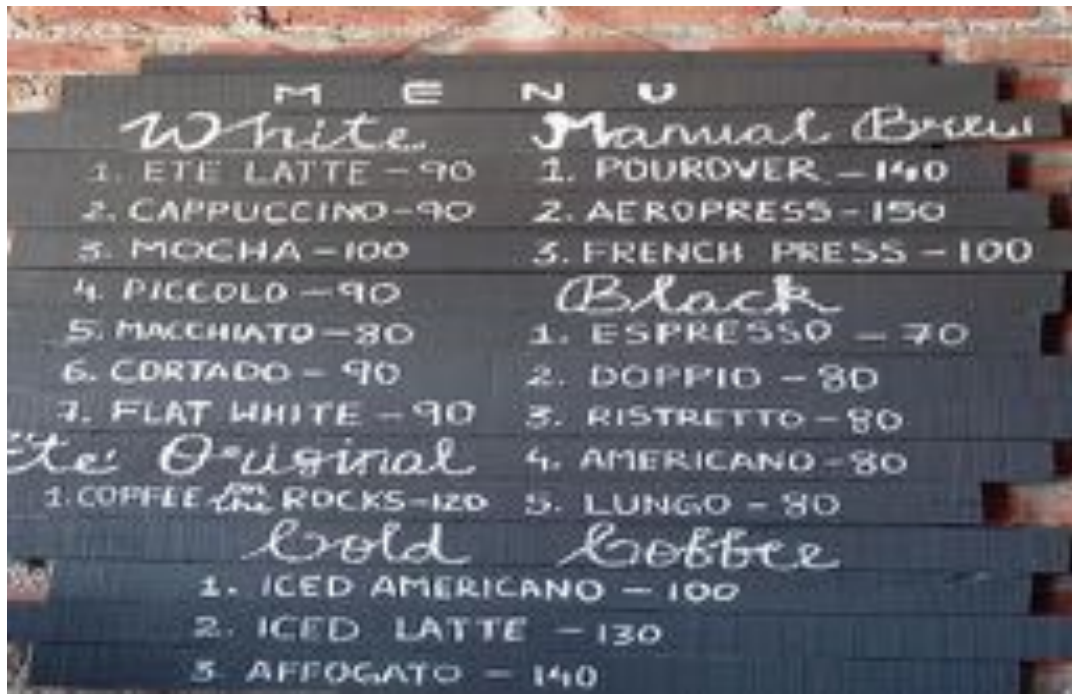 MENU
White
1. ETE LATTE - 90
2. CAPPUCCINO - 90
3. MOCHA - 100
4. PICCOLO - 90
5. MACCHIATO - 80
6. CORTADO - 90
7. FLAT WHITE - 90
Ete' Original
1. COFFEE on the ROCKS - 120
Manual Brew
1. POUROVER - 140
2. AEROPRESS - 150
3. FRENCH PRESS - 100
Black
1. ESPRESSO - 70
2. DOPPIO - 80
3. RISTRETTO - 80
4. AMERICANO - 80
5. LUNGO - 80
Cold Coffee
1. ICED AMERICANO - 100
2. ICED LATTE - 130
3 AFFOGATO - 140